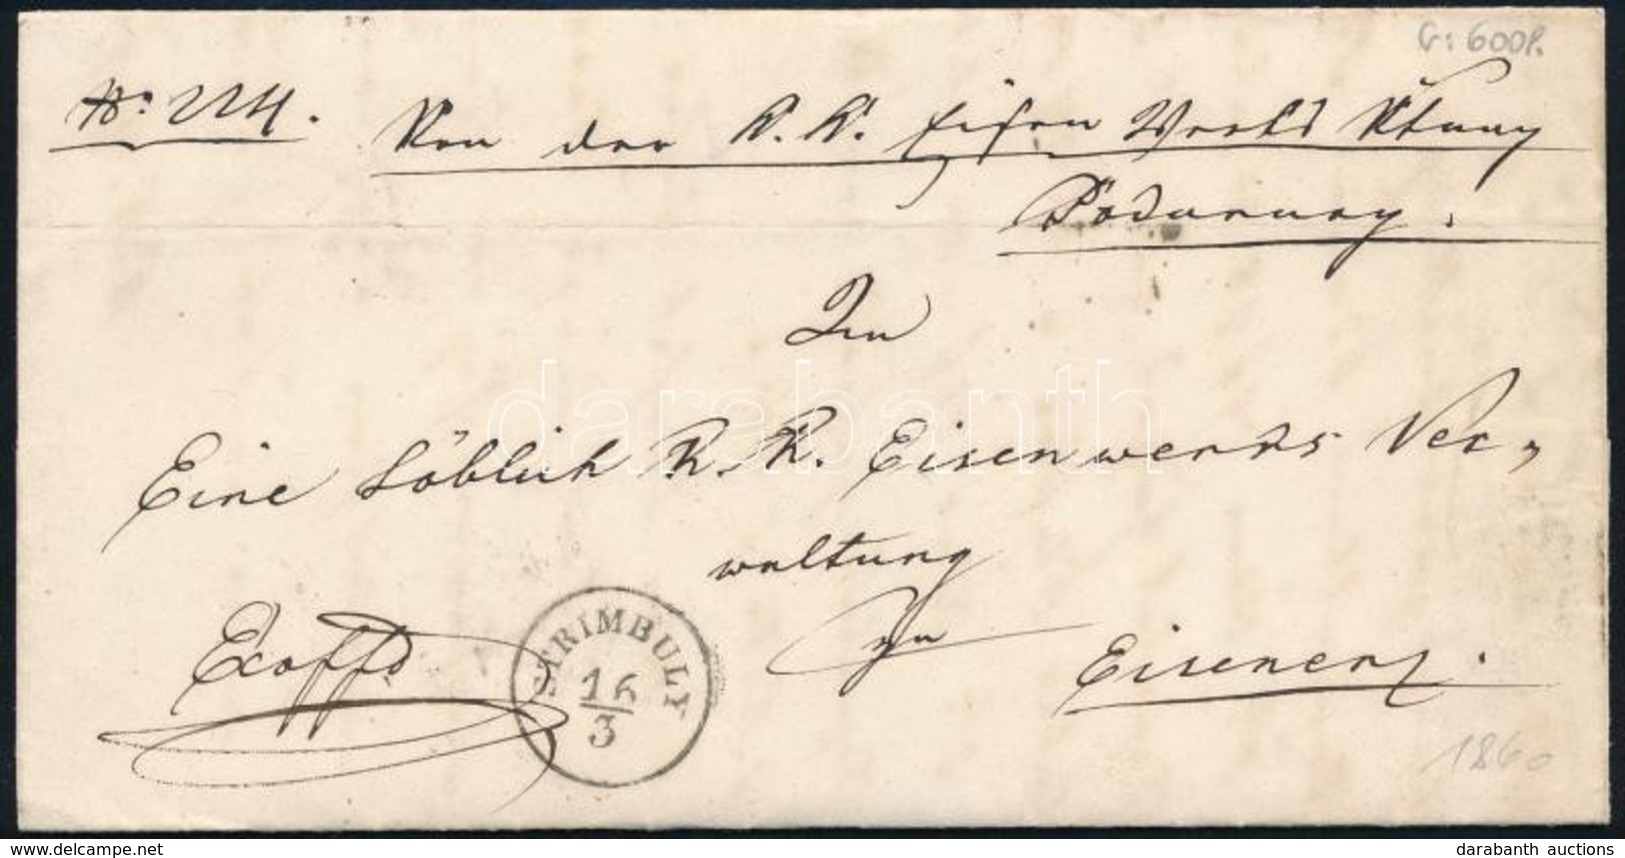 G: 600P.
No: 224.
Von der K. K. Eisen Werks
An
Eine Löblich K. K. Eisenwerks Ver-
waltung
zu
Eisenerz.
Exoffo
STRIMBULY
16
3
1860
darabanth
delcampe.net
darabanth auctions